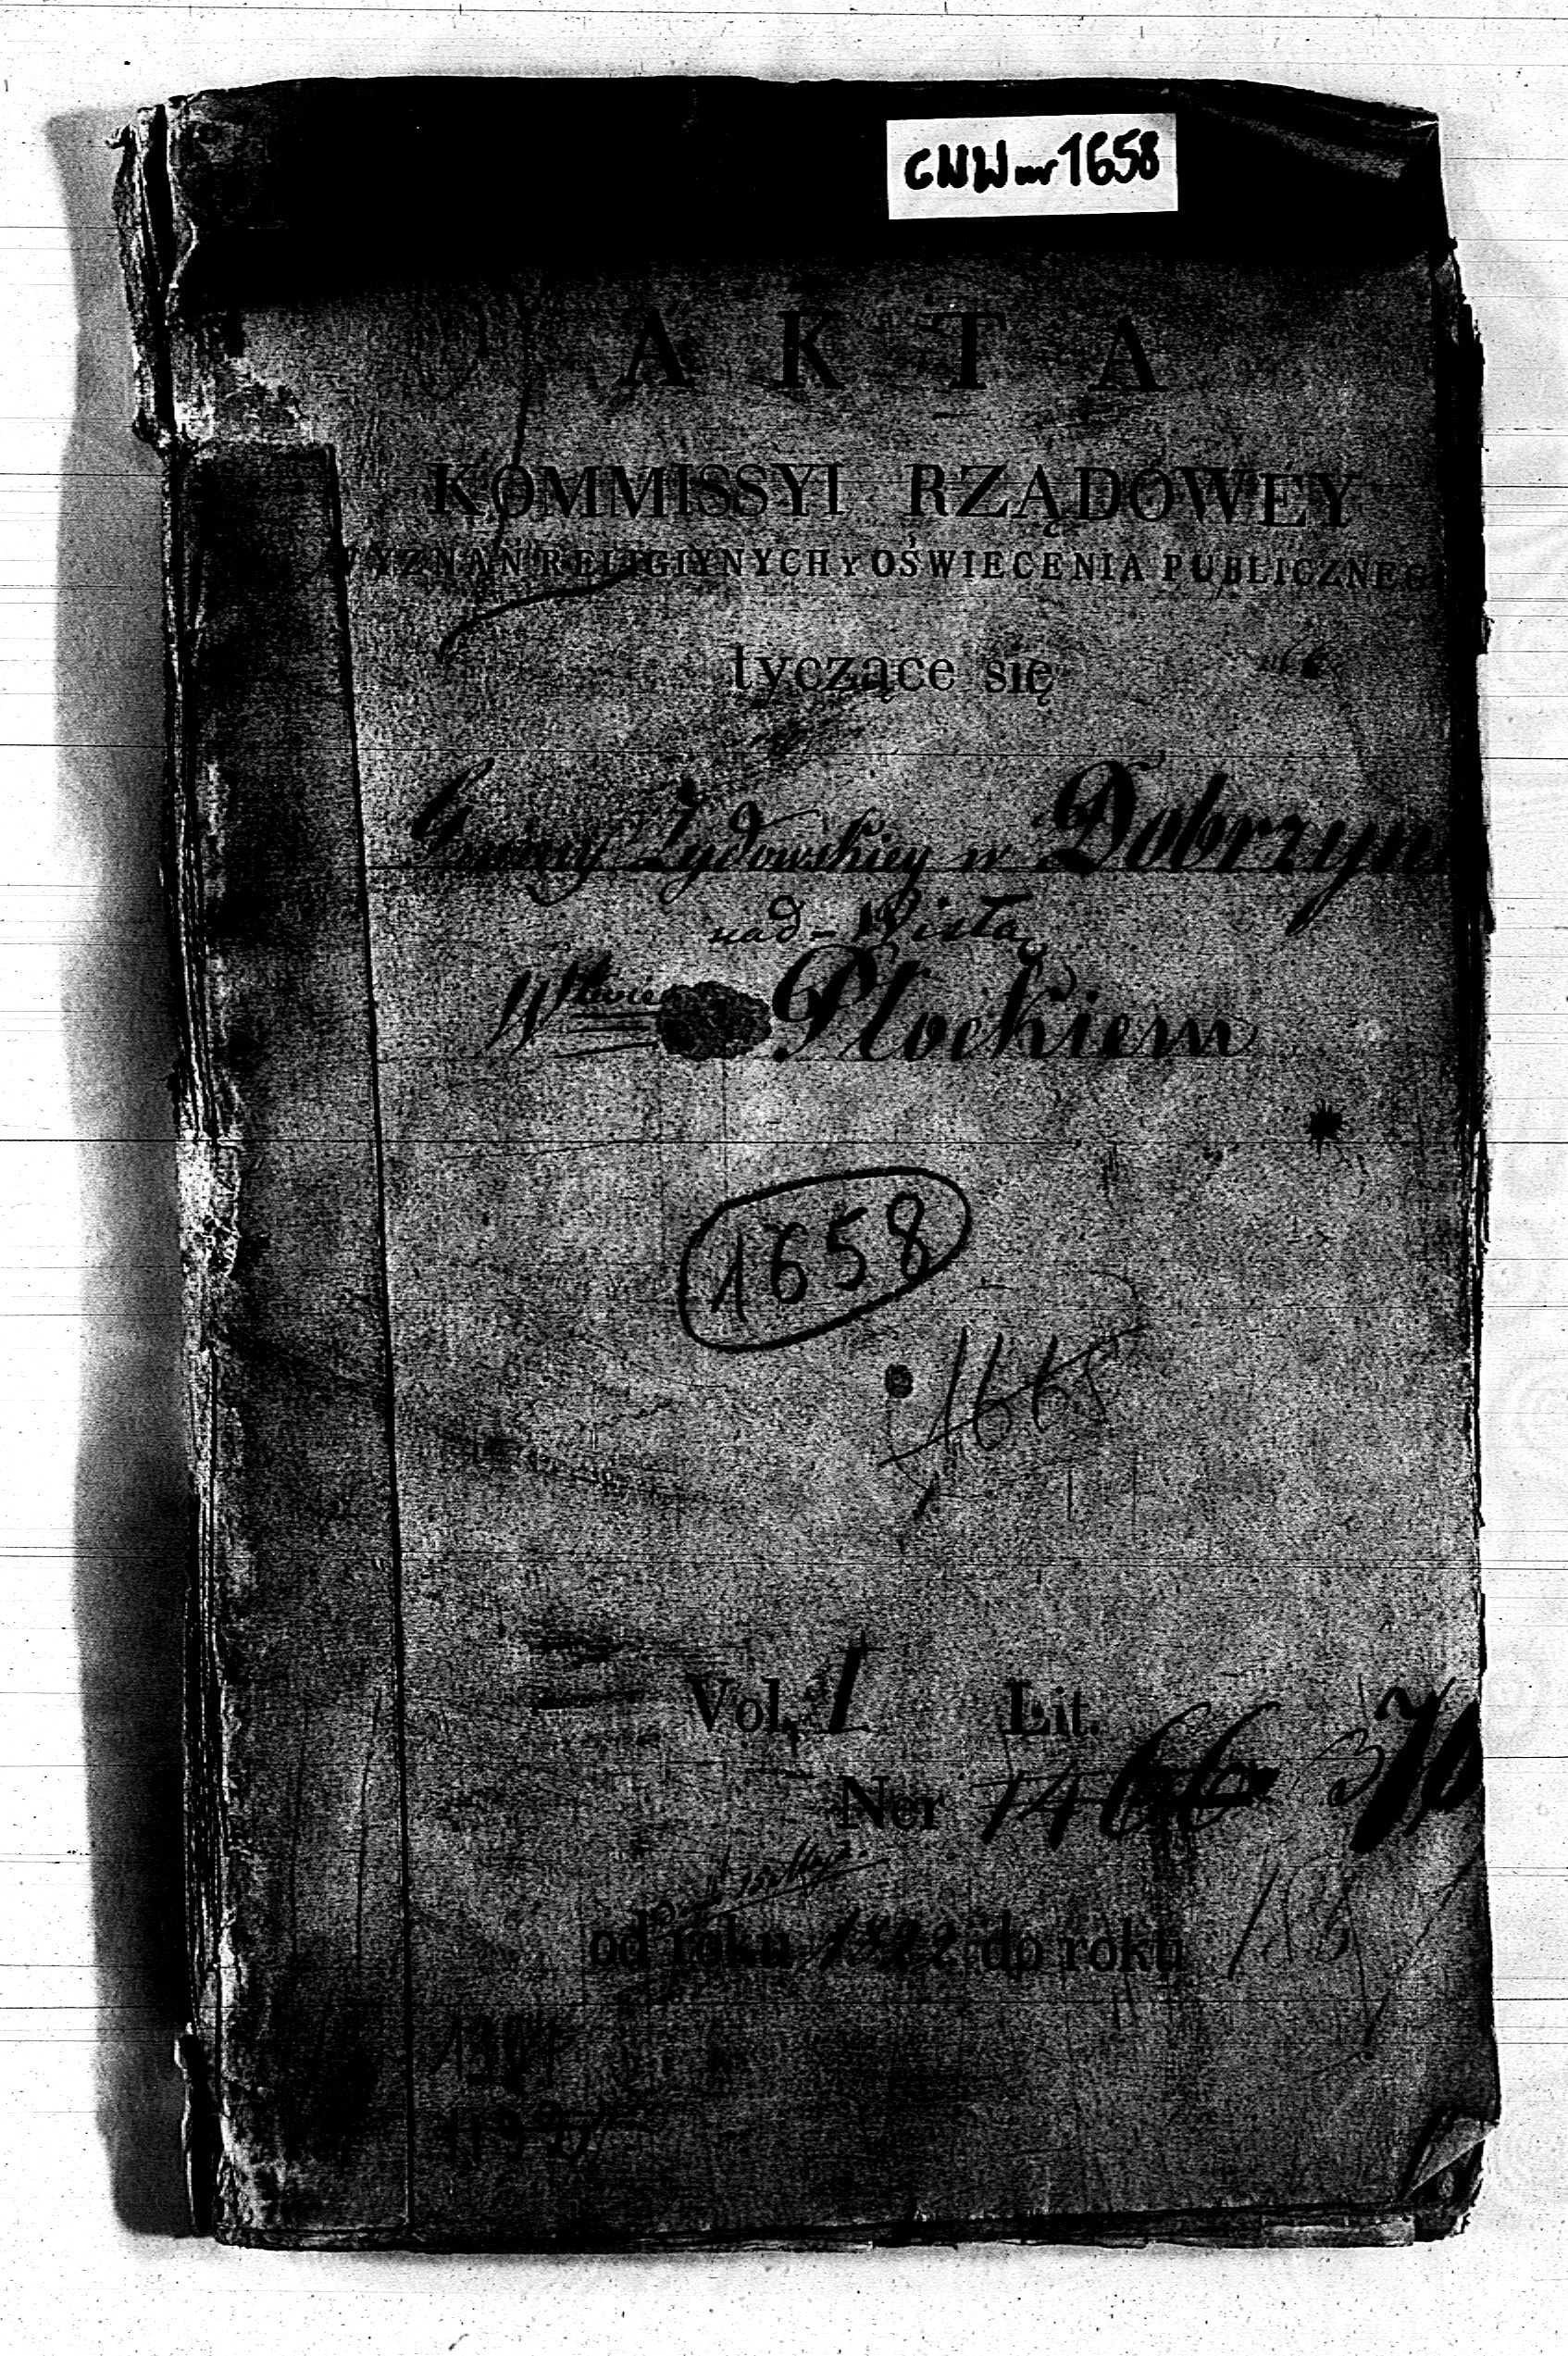 CWW nr 1658
AKTA
KOMMISSYI RZĄDOWEY
WYZNAŃ RELIGIYNYCH Y OŚWIECENIA PUBLICZNEG
tyczące się
Gminy Żydowskiey w Dobrzyn
nad-Wisłą
W Płockiem
1658
1665
Vol. I Lit.
Ner 1466
od roku 1822 do roku